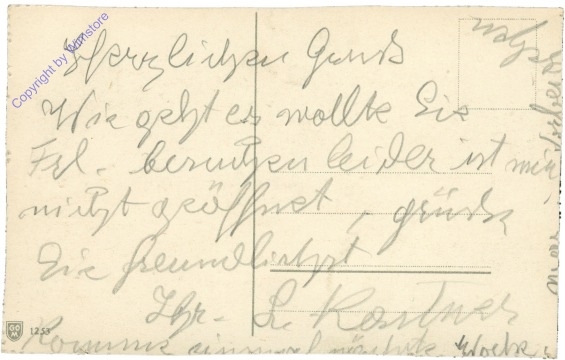 Herzlichen Gruß
Wie geht es wollte Sie
Frl. besuchen leider ist mir
nicht geöffnet, grüße
Sie freundlichst
Ihr. L. Kastner
Komme einmal nächste Woche
1253
Copyright by Wimstore